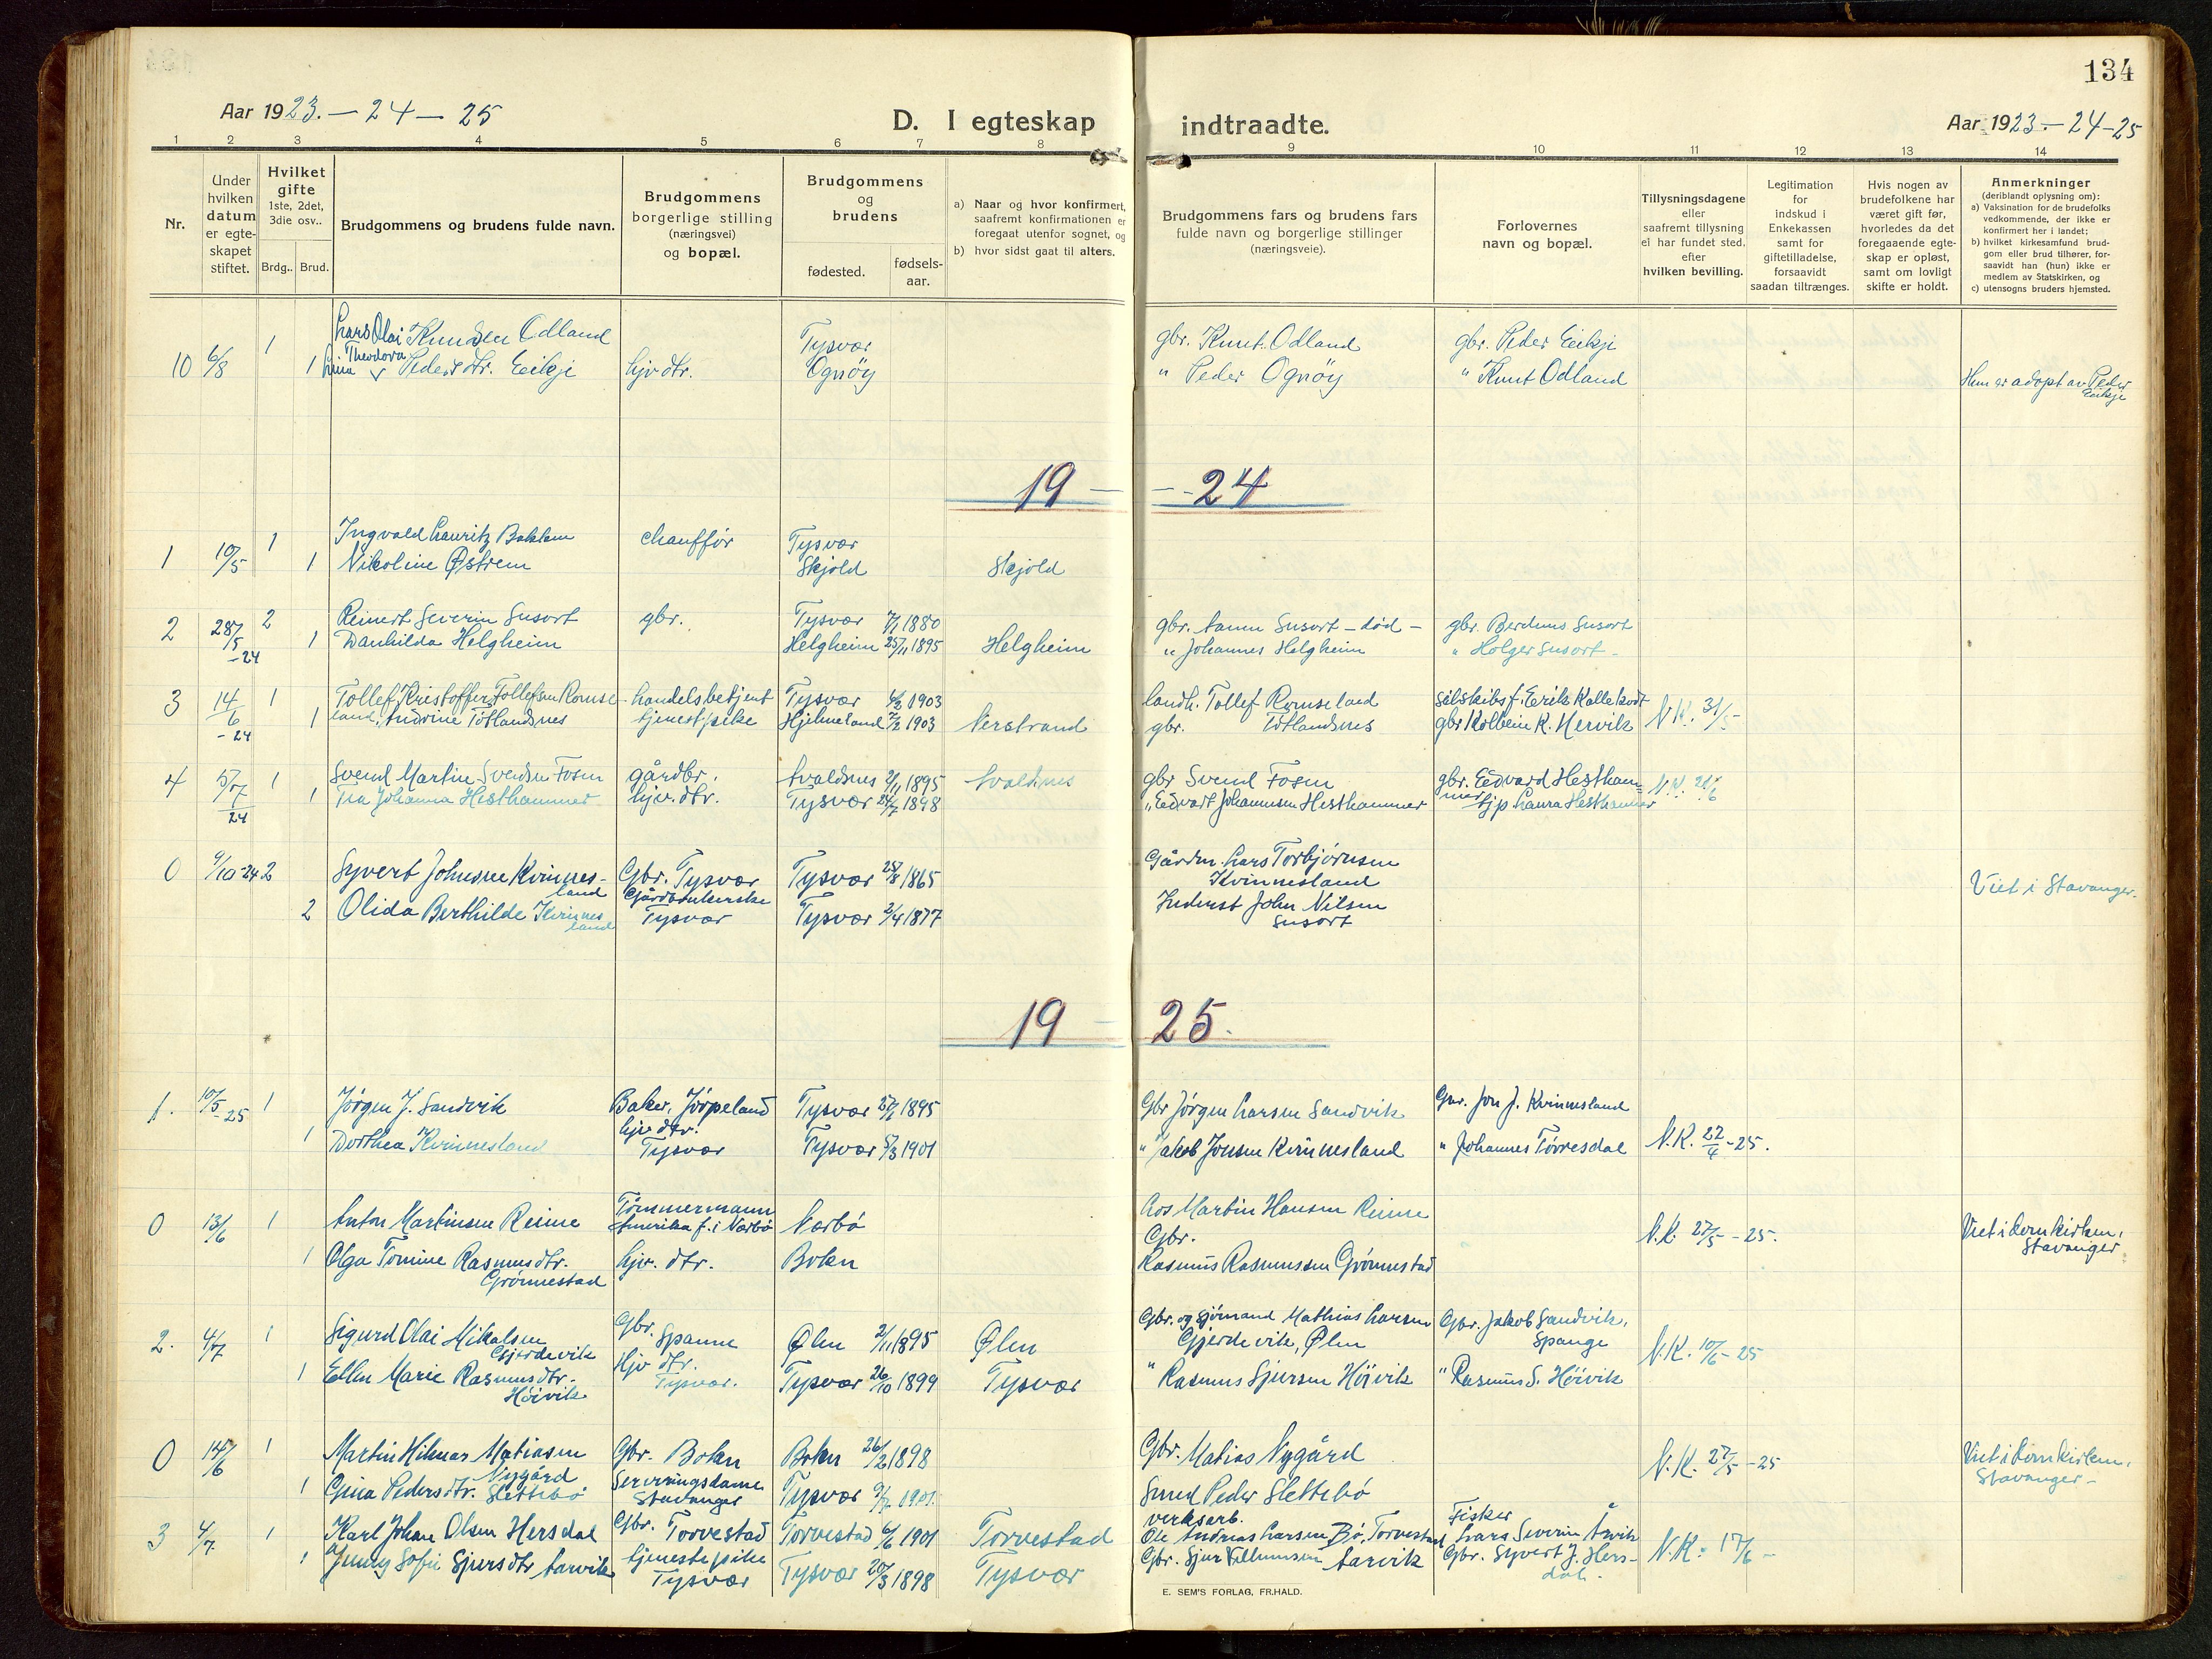 134
Aar 1923. - 24 - 25
D. I egteskap indtraadte.
Aar 1923. - 24 - 25
1 2 3 4 5 6 7 8 9 10 11 12 13 14
Nr.
Under hvilken datum er egte-skapet stiftet.
Hvilket gifte 1ste, 2det, 3die osv..
Brdg.. Brud.
Brudgommens og brudens fulde navn.
Brudgommens borgerlige stilling (næringsvei) og bopæl.
Brudgommens og brudens
fødested.
fødsels-aar.
a) Naar og hvor konfirmert, saafremt konfirmationen er foregaat utenfor sognet, og
b) hvor sidst gaat til alters.
Brudgommens fars og brudens fars fulde navn og borgerlige stillinger (næringsveie).
Forlovernes navn og bopæl.
Tillysningsdagene eller saafremt tillysning ei har fundet sted, efter hvilken bevilling.
Legitimation for indskud i Enkekassen samt for giftetilladelse, forsaavidt saadan tiltrænges.
Hvis nogen av brudefolkene har været gift før, hvorledes da det foregaaende egte-skap er opløst, samt om lovligt skifte er holdt.
Anmerkninger (deriblandt oplysning om):
a) Vaksination for de brudefolks vedkommende, der ikke er konfirmert her i landet;
b) hvilket kirkesamfund brud-gom eller brud tilhører, for-saavidt han (hun) ikke er medlem av Statskirken, og
c) utensogns bruders hjemsted.
1 Lars Olai Knudsen Odland Tysvær gbr. Knut Odland gbr. Peder Eikje
10 6/8 1 Lina Theodora Pedersdtr. Eikje hjv dtr. Ognøy " Peder Ognøy " Knut Odland Hun er adopt av Peder Eikje
19 - - 24
1 Ingvald Lauritz chauffør Tysvær
1 10/5 1 Nikoline Østrem Skjold Skjold
2 Reinert Severin Susort gbr. Tysvær 7/1 1880 gbr. Susort - død - gbr. Berdines Susort
2 28/5 -24 1 Danhilda Helgheim Helgheim 25/11 1895 Helgheim " Johannes Helgheim " Holger Susort -
3 14/6 -24 1 Tollef Kristoffer Tollefsen Romse- handelsbetjent Tysvær 1903 landh. Tollef Romseland Erik Kallekodt
1 land, Andrine Tøtlandsnes tjenestpike Hjelmeland 1903 Nerstrand gbr. Tøtlandsnes gbr Kolbein K. Hervik N.K. 31/5 -
4 5/7 24 1 Svend Martin Svendsen Fosen gårdbr. Avaldsnes 2/11 1895 Avaldsnes gbr Svend Fosen gbr. Edvard Hestham-
1 Tea Johanna Hesthammer hjv. dtr. Tysvær 24/7 1898 " Edvart Johannesen Hesthammer mer tjp Laura Hesthammer N.K. 21/6
0 9/10-24 2 Syvert Johnsen Kvinnes-land Gbr. Tysvær Tysvær 28/8 1865 Gårdm. Lars Torbjørnsen Kvinnesland Viet i Stavanger.
2 Olida Berthilde Kvinnes land Gårdbrukerske Tysvær Tysvær 2/4 1877 Inderst John Nilsen Susort
19 - 25.
1. 10/5 -25 1 Jørgen J. Sandvik Baker, Jørpeland Tysvær 1895 Gbr Jørgen Larsen Sandvik Gbr. Jon J. Kvinnesland
1 Dorthea Kvinnesland hjv dtr. Tysvær Tysvær 1901 " Jakob Jonsen Kvinnesland " Johannes Tørresdal N.K. 22/4 -25.
0 13/6 1 Anton Martinsen Reime Tømmermann Amerika f. i Nærbø Nærbø Martin Hansen Reime N.K. 27/5 -25. Viet i domkirken, Stavanger
1 Olga Tomine Rasmusdtr. Grønnestad hjv. dtr. Bokn Gbr. Rasmus Rasmussen Grønnestad
2. 4/7 1 Sigurd Olai Mikalsen Gjerdevik Gbr. Spanne Ølen 2/11 1895 Ølen Gbr. og sjømand Mathias Larsen Gjerdevik, Ølen Gbr. Jakob Sandvik, Spange N.K. 10/6 -25
1 Ellen Marie Rasmusdtr. Høivik Hjv dtr. Tysvær. Tysvær 26/10 1899 Tysvær " Rasmus Sjursen Høivik " Rasmus S. Høivik
0 14/6 1 Martin Hilmar Matiasen Nygård Gbr. Bokn Bokn 26/2 1898 Gbr. Matias Nygård N.K. 27/5 -25 Viet i domkirken, Stavanger -
1 Gina Pedersdtr. Slettebø Serveringsdame Stavanger Tysvær 1901. Smed Peder Slettebø
3 4/7. 1 Karl Johan Olsen Hersdal Gbr. Torvestad Torvestad 6/6 1901 Torvestad verksarb. Ole Andreas Larsen Bø, Torvestad Fisker Lars Severin Årvik N.K. 17/6 -
1 Jenny Sofie Sjursdtr Aarvik tjenestepike Tysvær Tysvær 20/3 1898 Tysvær Gbr. Sjur Aarvik Gbr. Syvert J. Hers-dal.
E. SEM'S FORLAG, FR.HALD.